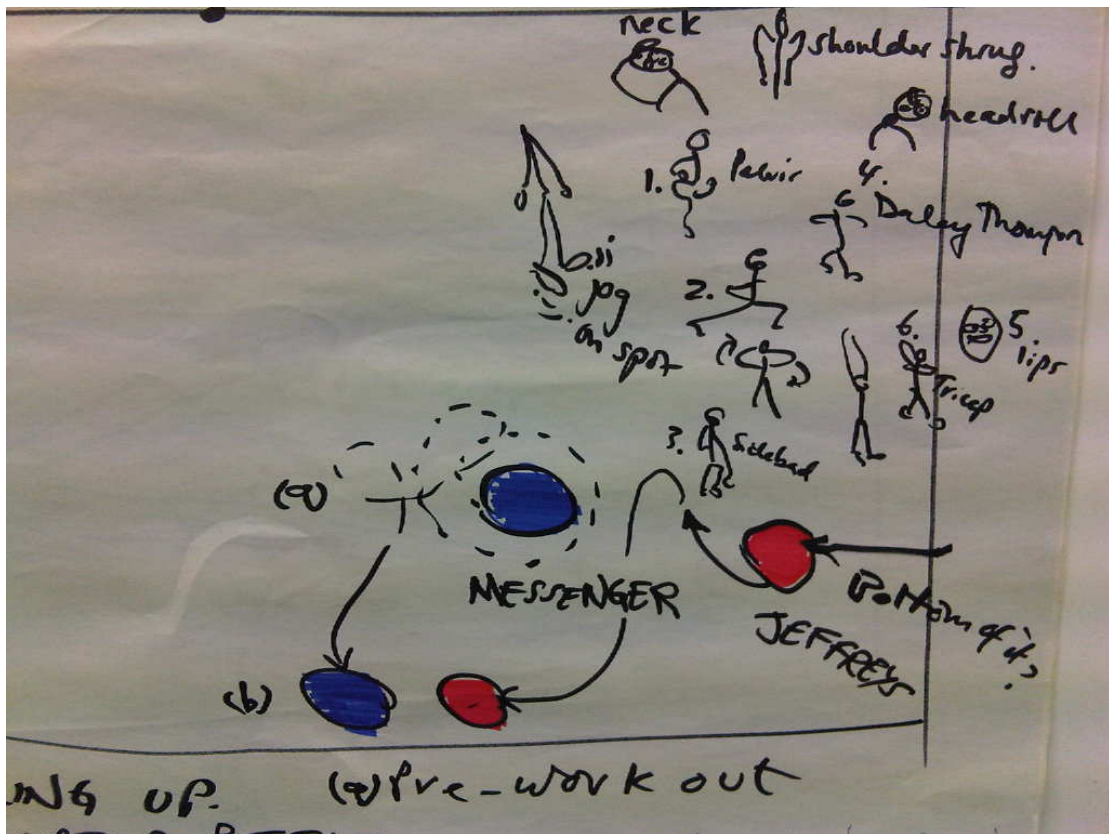 neck
shoulder shrug.
headroll
1. Pelvic
4.
Daley Thompson
0.ii
jog
on spot
2.
6.
Tricep
5.
lips
3. Sidebend
(a)
MESSENGER
JEFFREYS
Bottom of it?
(b)
ING UP. (a) Pre-work out